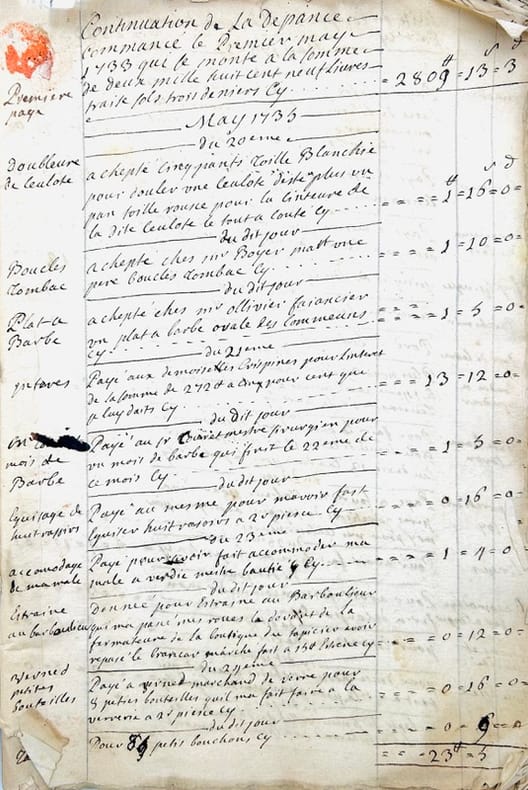 Continuation de La Depance
commance le Premier may
1733 que se monte a la somme
de deux mille huit cent neuf Livres
traise sols trois deniers Cy = 2809 ₶ = 13 s = 3 d
Premiere
page
May 1735
du 20eme
Doubleure
de Culote
achepté cinq pants Toille Blanchie
pour doubler une Culote diste plus un
pan toille rousse pour la Cinteure de
la dite Culote le tout a couté Cy = = = = 1 ₶ = 16 s = 0 d
du dit jour
Boucles
Tombac
achepté ches mr Boyer matt une
pere boucles Tombac Cy = = = = 1 = 10 = 0
du dit jour
Plat a
Barbe
achepté ches mr ollivier faiancier
un plat a barbe ovale des Commeuns
Cy = = = = 1 = 5 = 0
du 21eme
Payé aux demoiselles Crispines pour Linteret
de la somme de 272 ₶ a cinq pour cent que
je luy doits Cy = = = 13 = 12 = 0
du Dit jour
un
mois de
Barbe
Payé au sr mestre sirurgien pour
un mois de barbe qui finit le 22eme de
ce mois Cy = = = 1 = 5 = 0
du dit jour
Eguisage de
huit rassoirs
Payé au mesme pour mavoir fait
Eguiser huit rasoirs a 2 s piesse Cy = = = 0 = 16 = 0
du 23eme
accomodage
de ma male
Payé pour avoir fait accommoder ma
male a Cy = = = 1 = 4 = 0
du dit jour
Estraine
au barbouilieur
Donné pour Estraine au Barboulieur
qui ma pane mes roues le devant de la
fermateure de la boutique du tapicier avoir
le brancar Cy = = = 0 = 12 = 0
du
petites
boutoilles
Payé a marchand de verre pour
8 peties bouteilles quil ma fait faire a la
verrerie a 2 s piesse Cy = = = 0 = 16 = 0
du dit jour
Pour petis bouchons Cy = = = 0
= = = 23 ₶ = 5